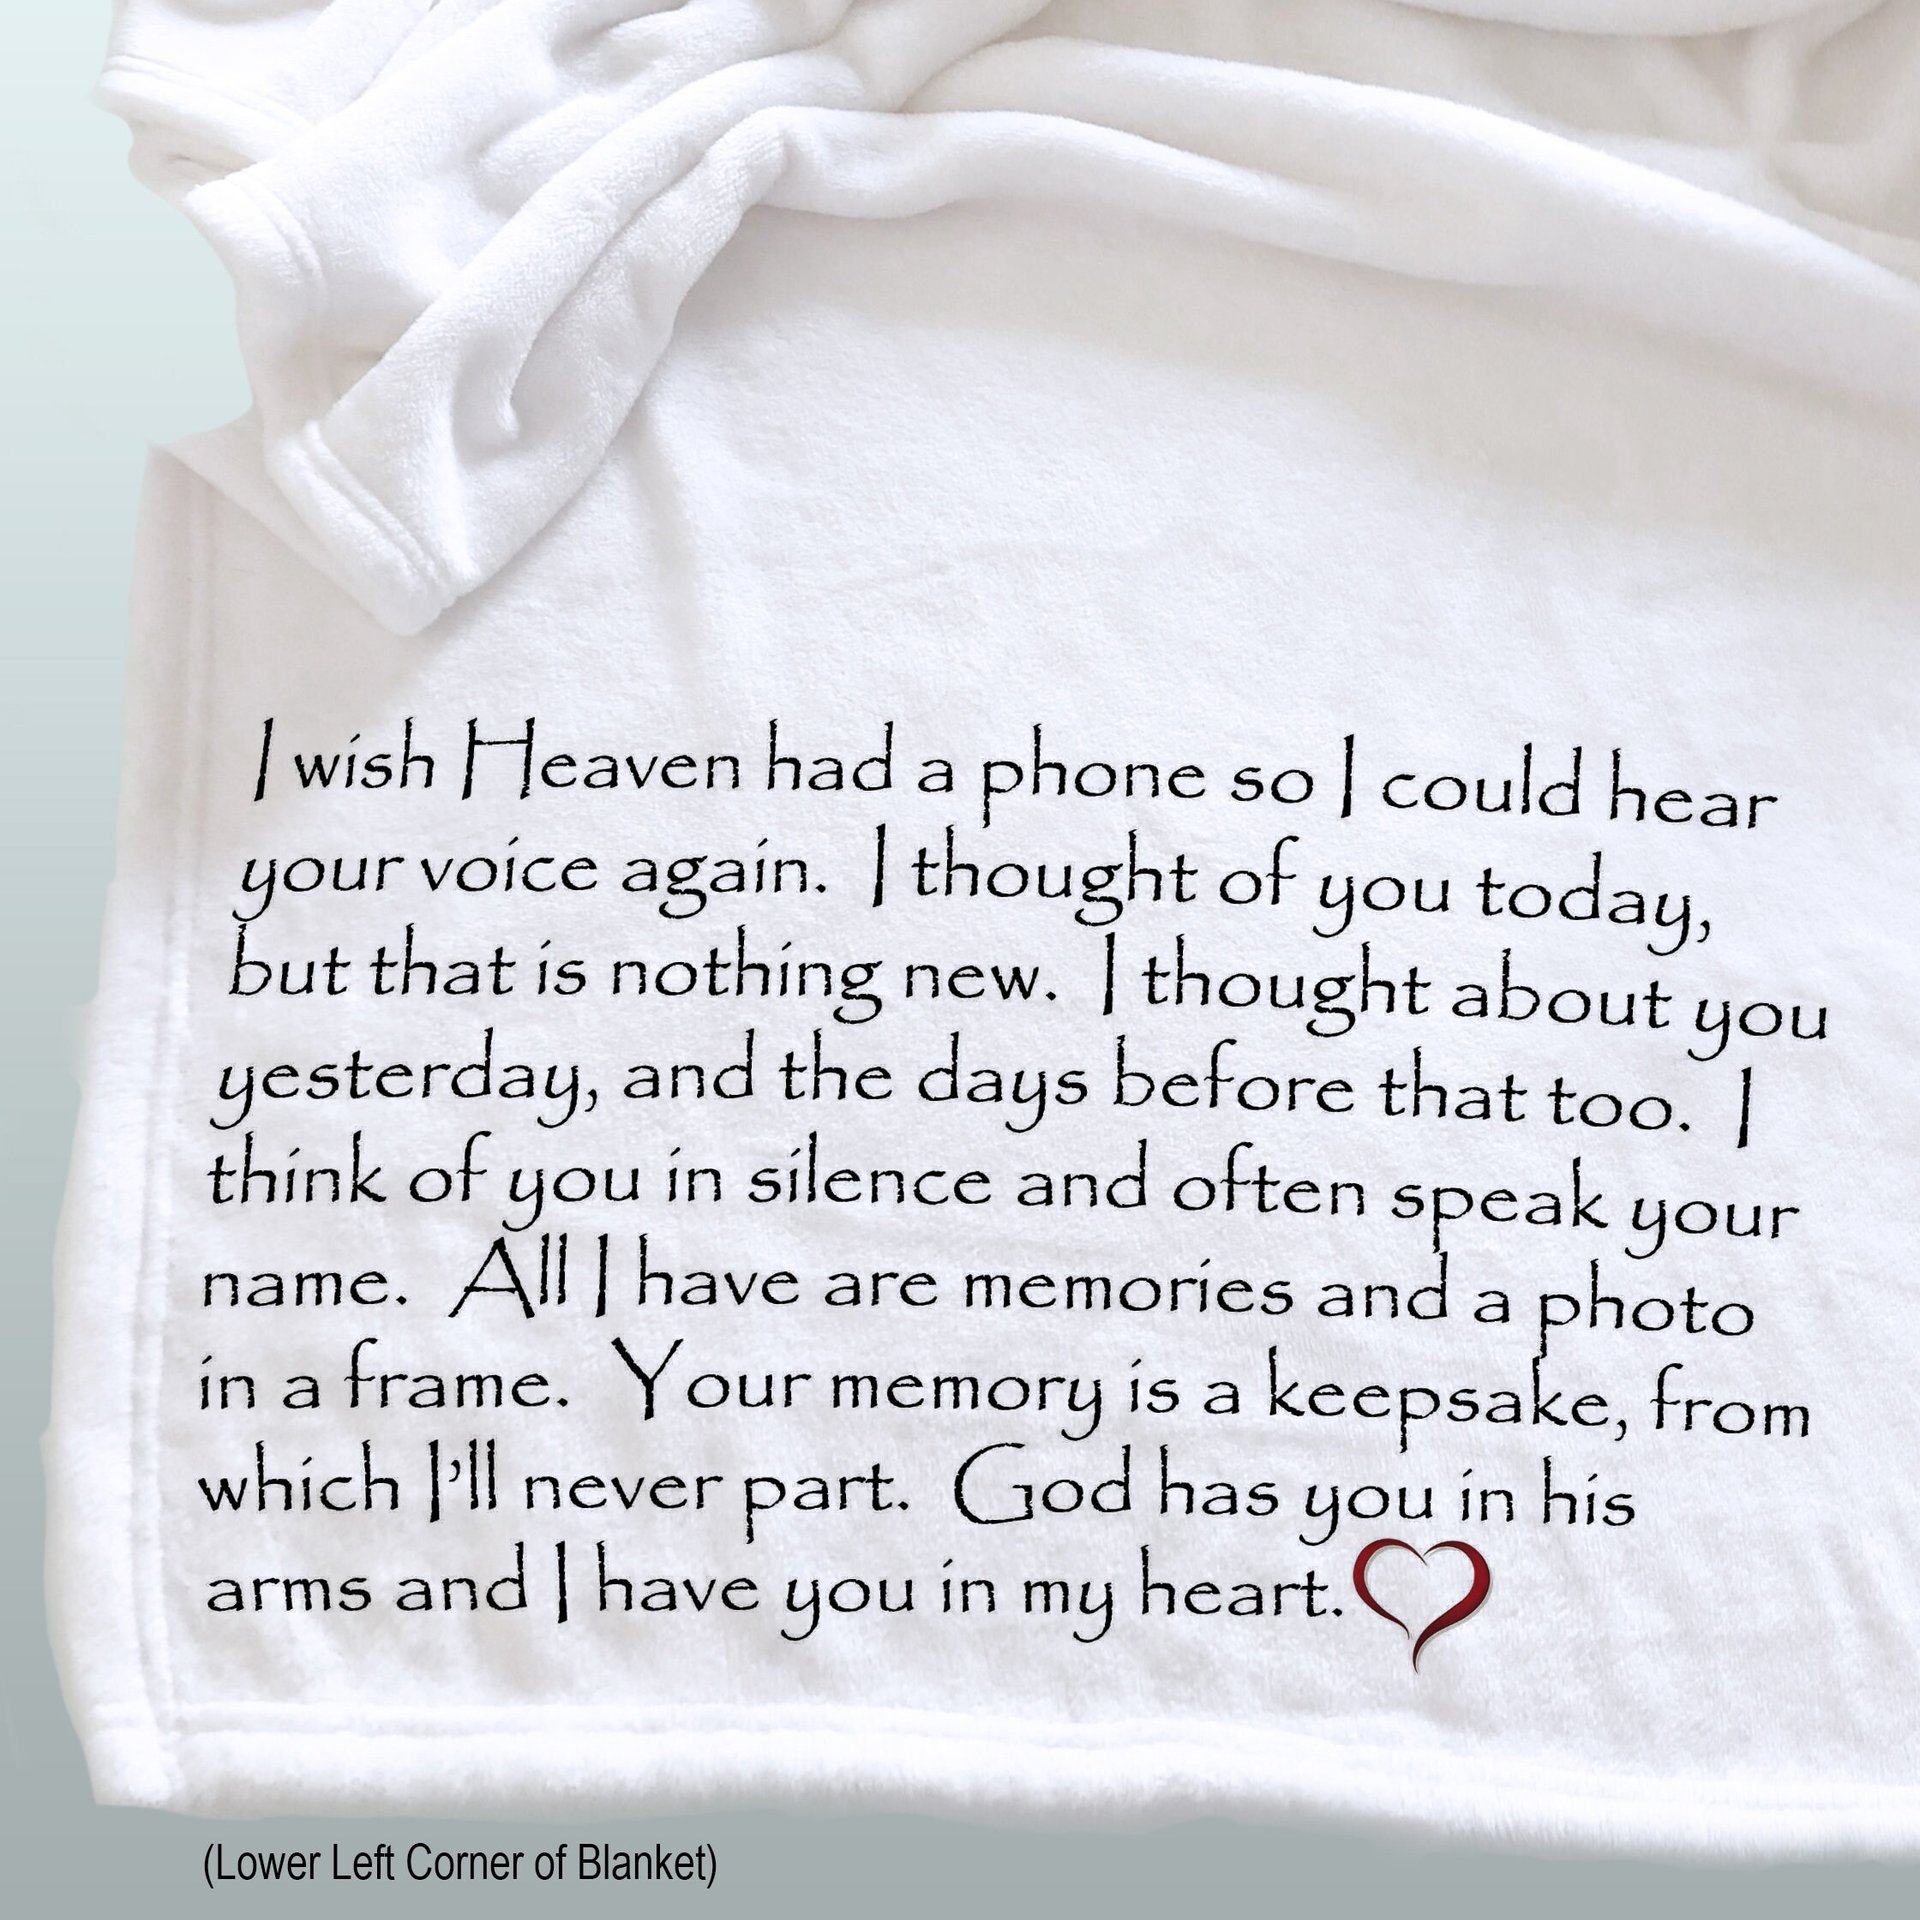 I wish Heaven had a phone so I could hear
your voice again. I thought of you today,
but that is nothing new. I thought about you
yesterday, and the days before that too. I
think of you in silence and often speak your
name. All I have are memories and a photo
in a frame. Your memory is a keepsake, from
which I'll never part. God has you in his
arms and I have you in my heart.
(Lower Left Corner of Blanket)